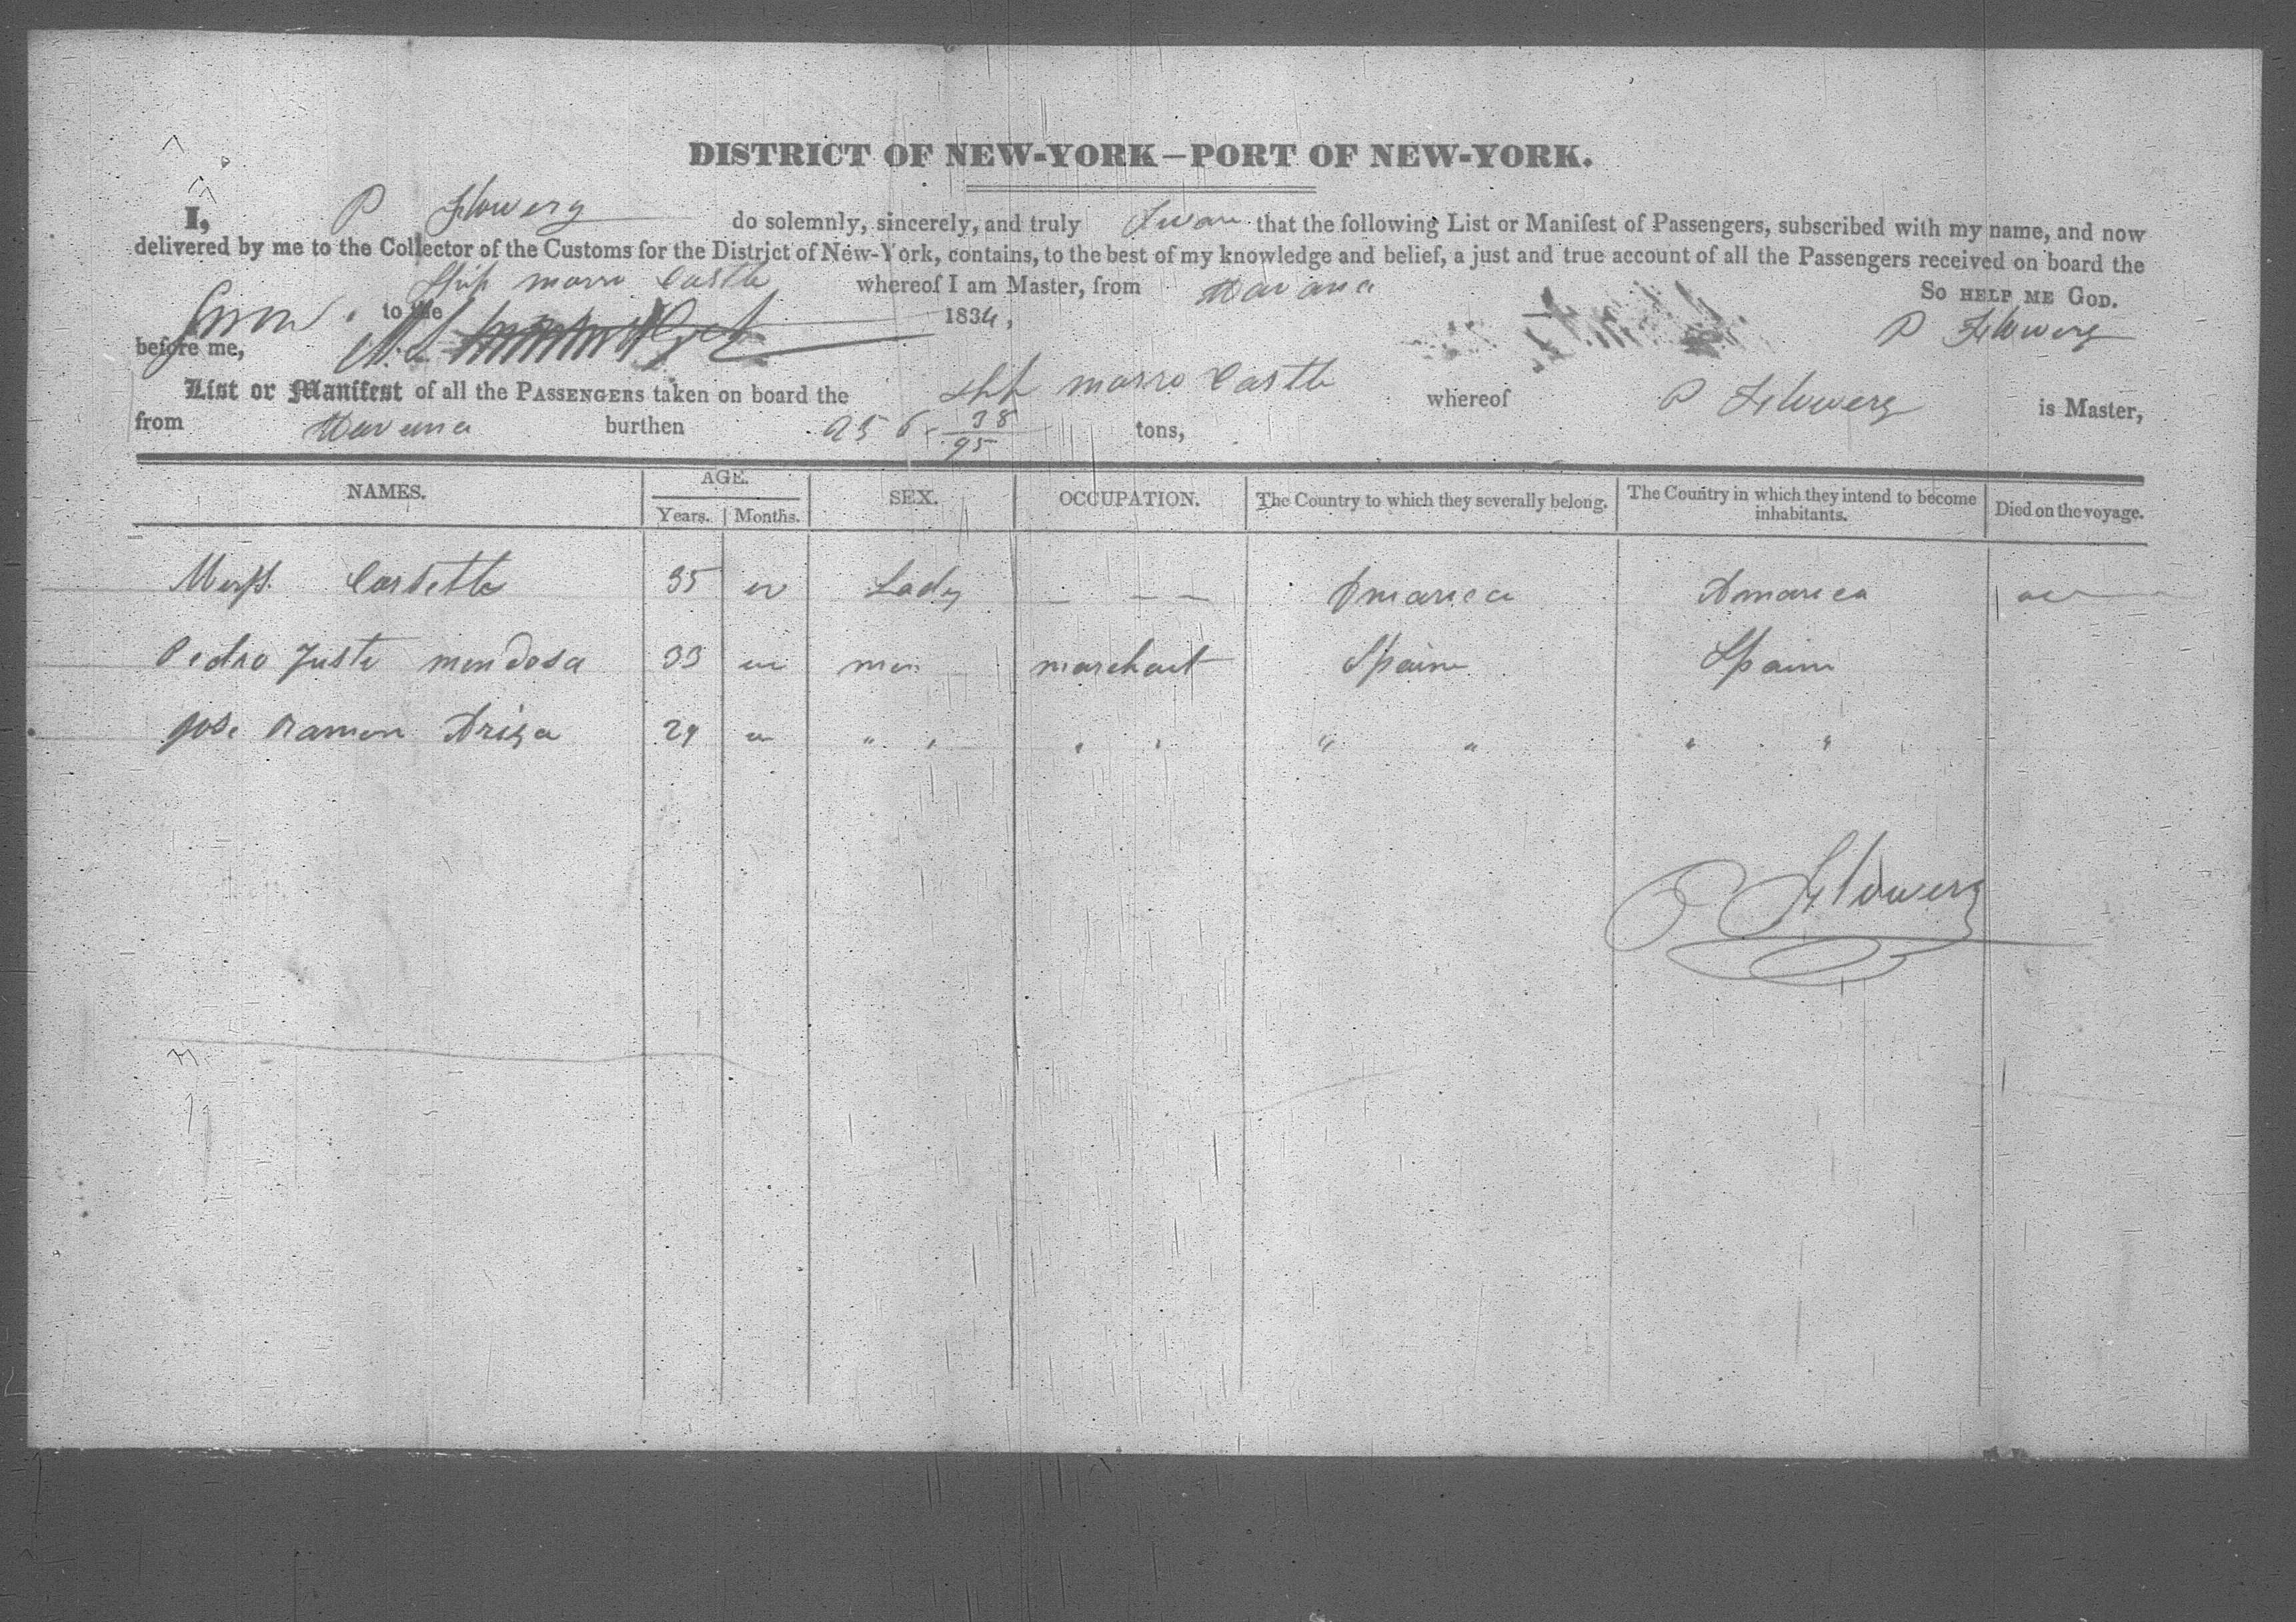 DISTRICT OF NEW-YORK—PORT OF NEW-YORK.
I, P Flowerg do solemnly, sincerely, and truly Swar that the following List or Manifest of Passengers, subscribed with my name, and now
delivered by me to the Collector of the Customs for the District of New-York, contains, to the best of my knowledge and belief, a just and true account of all the Passengers received on board the
Ship morro Castle whereof I am Master, from Havana
So HELP ME GOD.
to the 1834,
before me,
P Flowerg
List or Manifest of all the PASSENGERS taken on board the Ship morro Castle whereof P Flowerg is Master,
from Havana burthen 956 38/95 tons,
NAMES. AGE. SEX. OCCUPATION. The Country to which they severally belong. The Country in which they intend to become inhabitants. Died on the voyage.
Years. Months.
35 Lady — — — Amareca Amareca
Pedro Juste mendosa 33 men marchant Spain Spain
Jose Ramon Ariza 29 " " " " " " " "
P Flowerg